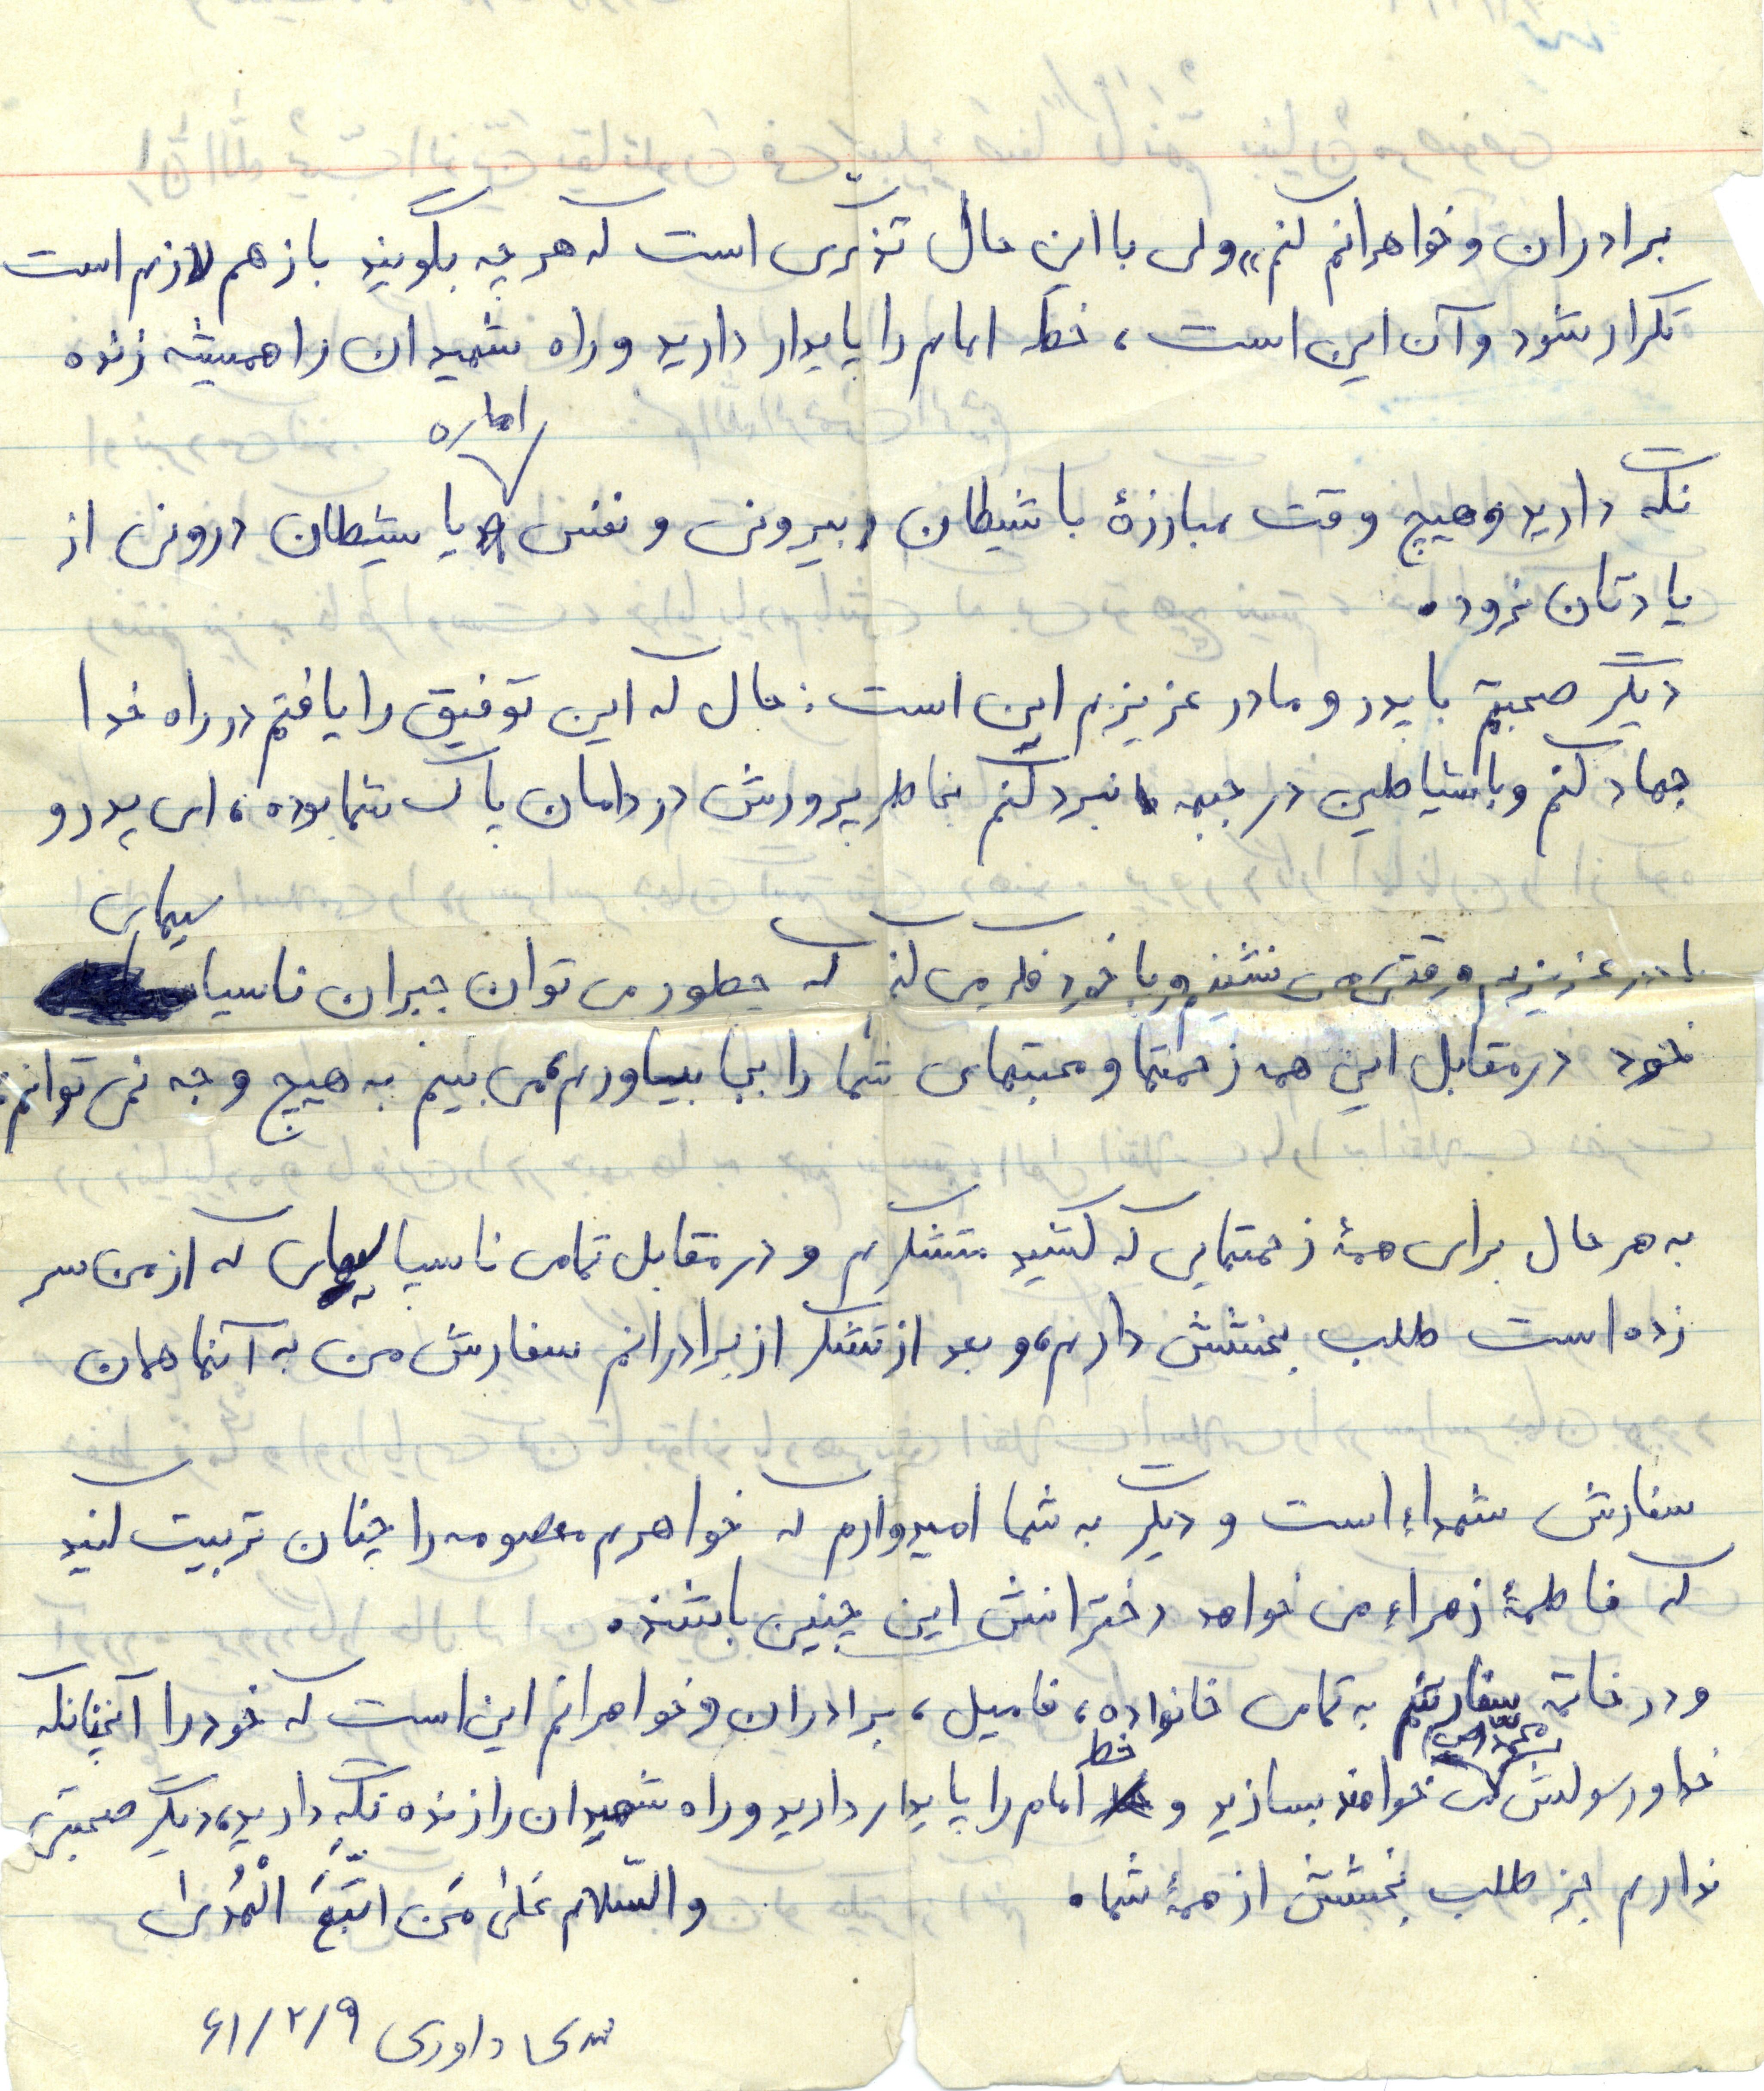 برادران و خواهرانم کنم» ولی با این حال تذکری است که هر چه بگویند باز هم لازم است
تکرار شود و آن این است، خط امام را پایدار دارید و راه شهیدان را همیشه زنده
نگه دارید و هیچ وقت مبارزهٔ با شیطان بیرونی و نفس اماره یا شیطان درونی از
یادتان نرود.
دیگر صحبتم با پدر و مادر عزیزم این است: حال که این توفیق را یافتم در راه خدا
جهاد کنم و با شیاطین در جبهه نبرد کنم بخاطر پرورش در دامان پاک شما بوده، ای پدر و
مادر عزیزم وقتی می نشینم و با خود فکر می کنم که چطور می توان جبران ناسپاسیهای
خود در مقابل این همه زحمتها و محبتهای شما را بجا بیاورم، می بینم به هیچ وجه نمی توانم،
به هر حال برای همهٔ زحمتهایی که کشیدید متشکرم و در مقابل تمامی ناسپاسیهای که از من سر
زده است طلب بخشش دارم، و بعد از تشکر از برادرانم سفارش من به آنها همان
سفارش شهداء است و دیگر به شما امیدوارم که خواهرم معصومه را چنان تربیت کنید
که فاطمهٔ زهراء می خواهد دخترانش این چنین باشند.
و در خاتمه سفارشم به تمامی خانواده، فامیل، برادران و خواهرانم این است که خود را آنچنانکه
خدا و رسولش می خواهند بسازید و خط امام را پایدار دارید و راه شهیدان را زنده نگه دارید، دیگر صحبتی
ندارم جز طلب بخشش از همهٔ شما.
والسّلام عَلیٰ مَن اتّبَعَ الْهُدیٰ
داوری ۶۱/۲/۹